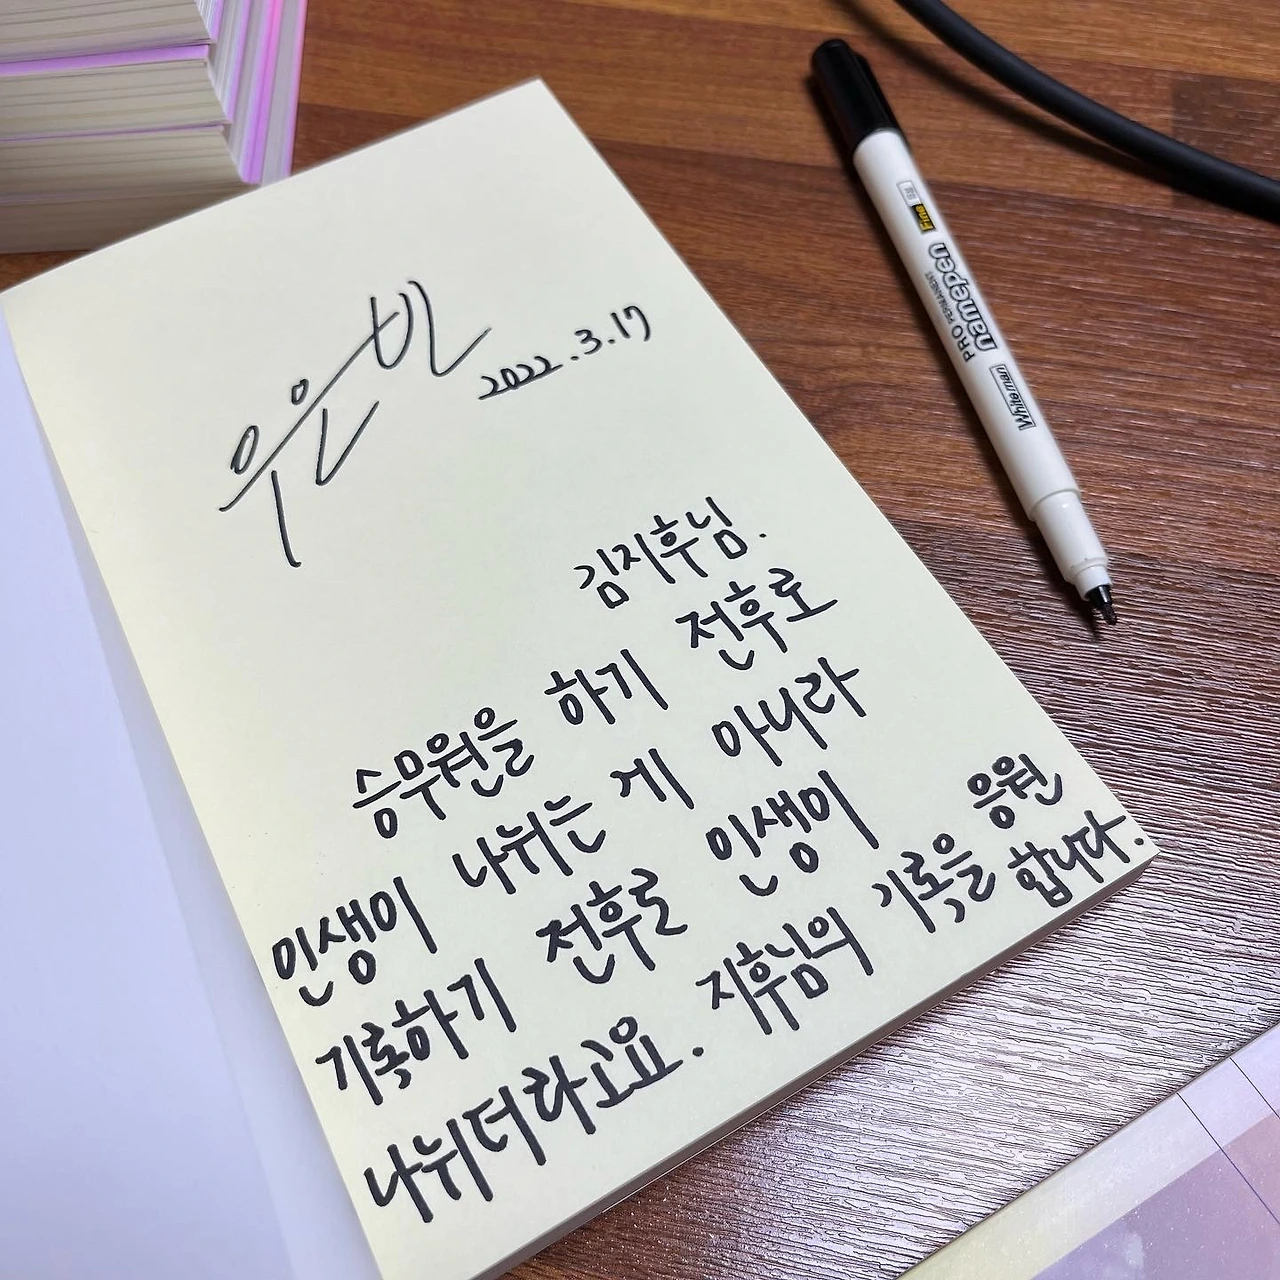 우은빈
2022.3.17
김지후님.
승무원을 하기 전후로
인생이 나뉘는 게 아니라
기록하기 전후로 인생이
나뉘더라고요. 지후님의 기록을 응원
합니다.
Whiteman
PRO PERMANENT
namepen
Fine